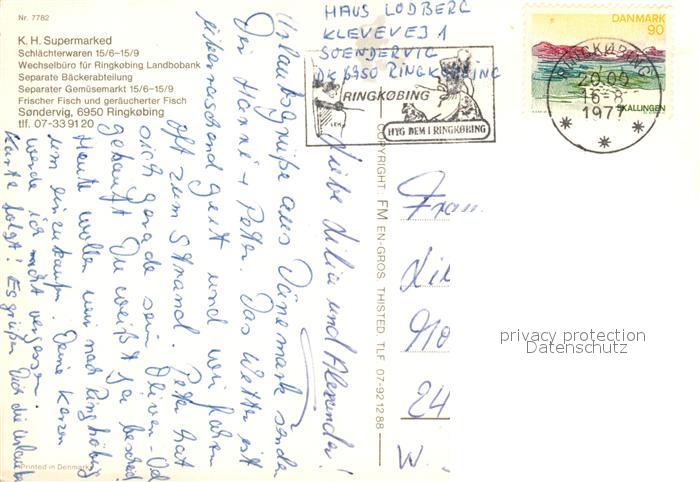 Nr. 7782
K. H. Supermarked
Schlachterwaren 15/6-15/9
Wechselbüro für Ringkøbing Landbobank
Separate Bäckerabteilung
Separater Gemüsemarkt 15/6-15/9
Frischer Fisch und geräucherter Fisch
Søndervig, 6950 Ringkøbing
tlf. 07-33 91 20
HAUS LODBERG
KLEVEVEJ 1
SOENDERVIG
DK 6950 RINGKØBING
RINGKØBING
HYG DEM I RINGKØBING
DANMARK
90
SKALLINGEN
RINGKØBING
20.00
16-8
1977
Liebe Lilia und Alexander!
Urlaubsgrüße aus Dänemark senden
Dir Hanni + Peter. Das Wetter ist
überraschend gut und wir fahren
oft zum Strand. Peter hat
sich gerade sein Oliven-Öl
gekauft. Du weißt ja bescheid!
Heute wollen wir nach Ringköbing
um einzukaufen. Deine Kerzen
werde ich nicht vergessen.
Karte folgt! Es grüßen Dich die Urlauber
COPYRIGHT: FM EN-GROS. THISTED. TLF. 07-92 12 88
Frau
24
W.
privacy protection
Datenschutz
Printed in Denmark